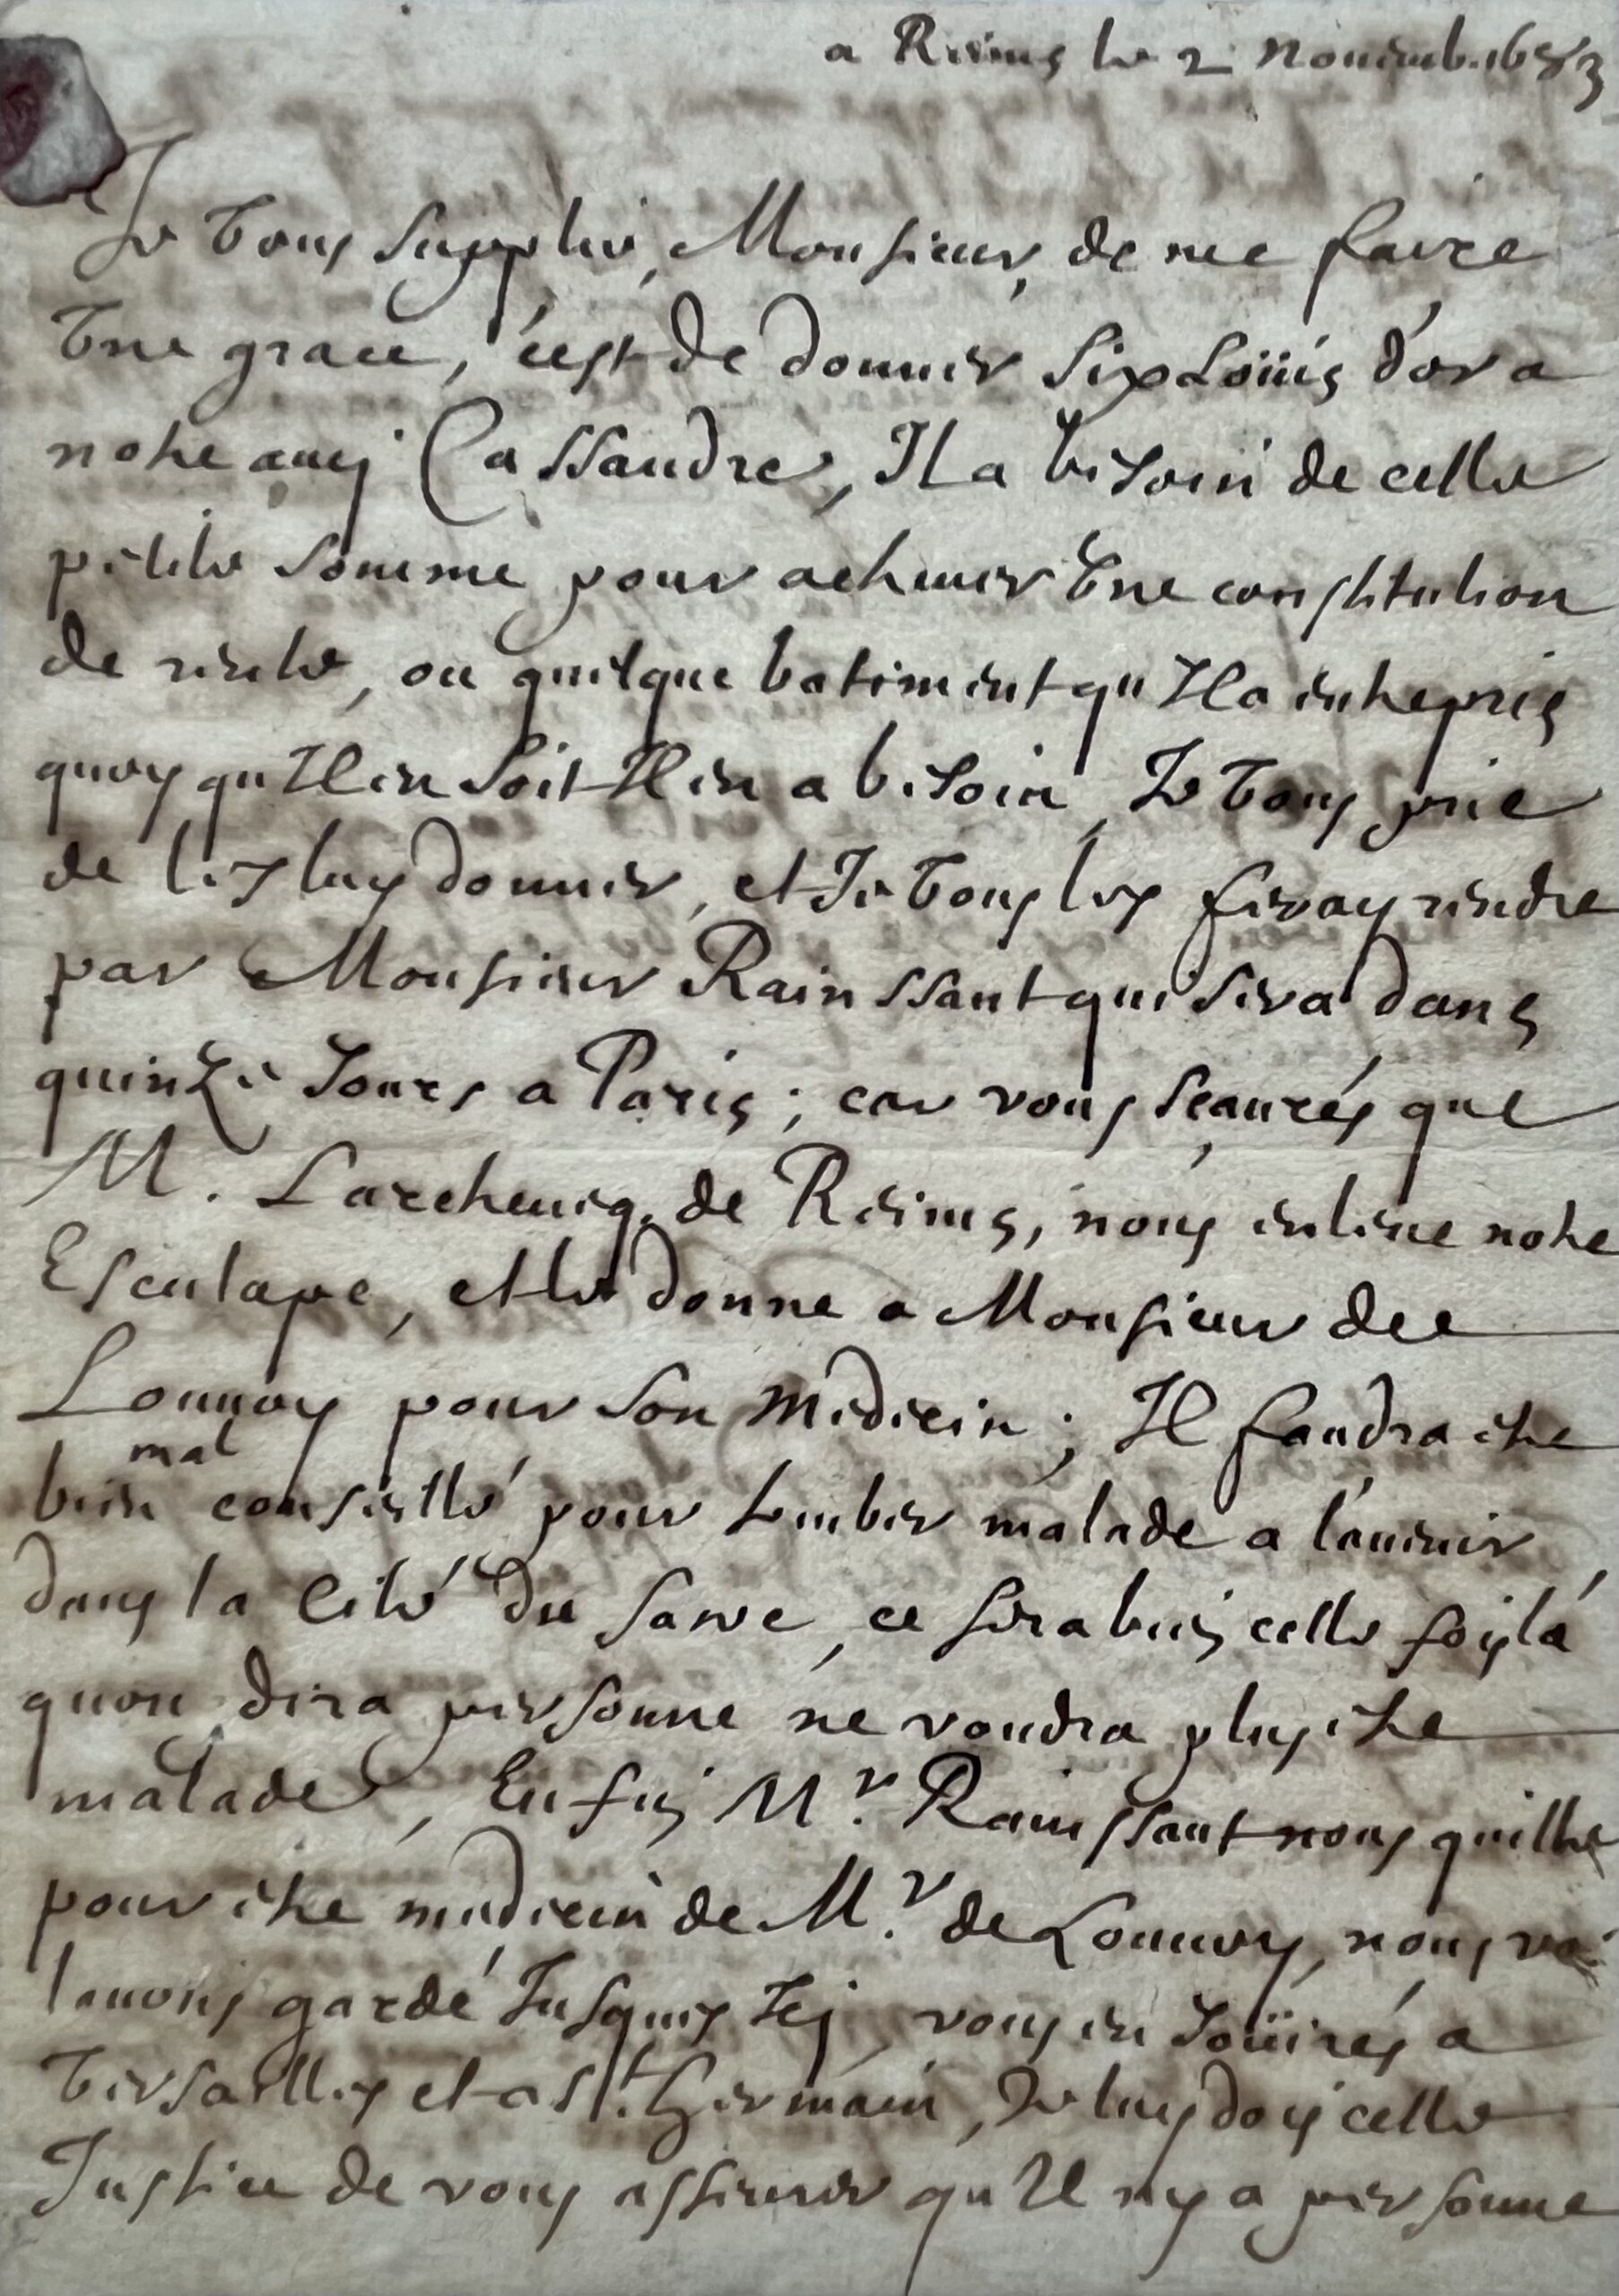 a Reims le 2 Nouemb. 1683
Je Vous supplie, Monsieur, de me faire
Vne grace, c'est de donner six Loüis d'or a
notre amj Cassandre, Il a besoin de cette
petite somme pour acheuer Vne constitution
de rente, ou quelque batiment qu'Il a entrepris
quoy qu'Il en soit Il en a besoin, Je Vous prie
de les luy donner, et Je Vous les feray rendre
par Monsieur Rainssant qui sera dans
quinze Jours a Paris; car vous sçaurés que
M. L'archeuêq. de Reims, nous enleue notre
Esculape, et le donne a Monsieur de
Louuoy pour son medecin; Il faudra être
mal
bien conseillé pour tomber malade a l'auenir
dans la Cité du sacre, ce sera bien cette fois la
qu'on dira personne ne voudra plus être
malade, Enfin Mr. Rainssant nous quitte
pour être medecin de Mr. de Louuoy, nous
l'auons gardé Jusques Icj vous en Joüirés a
Versailles et a St. Germain, Je luy dois cette
Justice de vous asseurer qu'Il n'y a personne